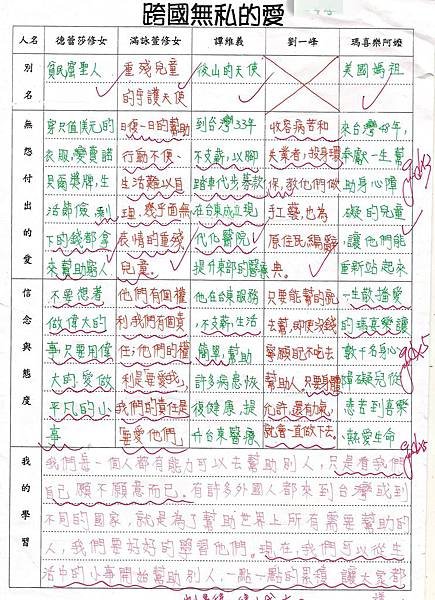 跨國無私的愛
人名
德蕾莎修女
滿詠萱修女
譚維義
劉一峰
瑪喜樂阿嬤
別名
貧民窟聖人
重殘兒童
的守護天使
後山的天使
美國媽祖
無怨付出的愛
穿只值美元的
衣服,變賣諾
貝爾獎牌,生
活節儉,剩
下的錢都拿
來幫助窮人
日復一日的幫助
行動不便、
生活難以自
理、幾乎面無
表情的重殘
兒童。
到台灣33年
不支薪,以腳
踏車代步募款
在台東成立現
代化醫院
提升東部的醫療
收容病苦和
失業者,故身環
保,教他們做
手工藝,也為
原住民編辭
典。
來台灣48年,
奉獻一生幫
助身心障
礙的兒童
讓他們能
重新站起來
信念與態度
不要想者
做偉大的
事,只要用偉
大的愛做
平凡的小
事
他們有個權
利,我們有個責
任;他們的權
利是「要愛我」,
我們的責任是
「要愛他們」
他在台東服務
,不支薪,生活
簡單,幫助
許多病患恢
復健康,提
升台東醫療
只要能幫的就
去幫,即使沒錢
寧願配不吃去
幫助人,只要身體
允許,還有氣,
就會一直做下去。
一生散播愛
的瑪喜樂讓
數千名身心
障礙兒從
悲苦到喜樂
、熱愛生命
我的學習
我們每一個人都有能力可以去幫助別人,只是看我們
自己願不願意而已。有許多外國人都來到台灣或到
不同的國家,就是為了幫助世界上所有需要幫助的
人,我們要好好的學習他們。現在,我們可以從生
活中的小事開始幫助別人,一點一點的累積,讓大家都